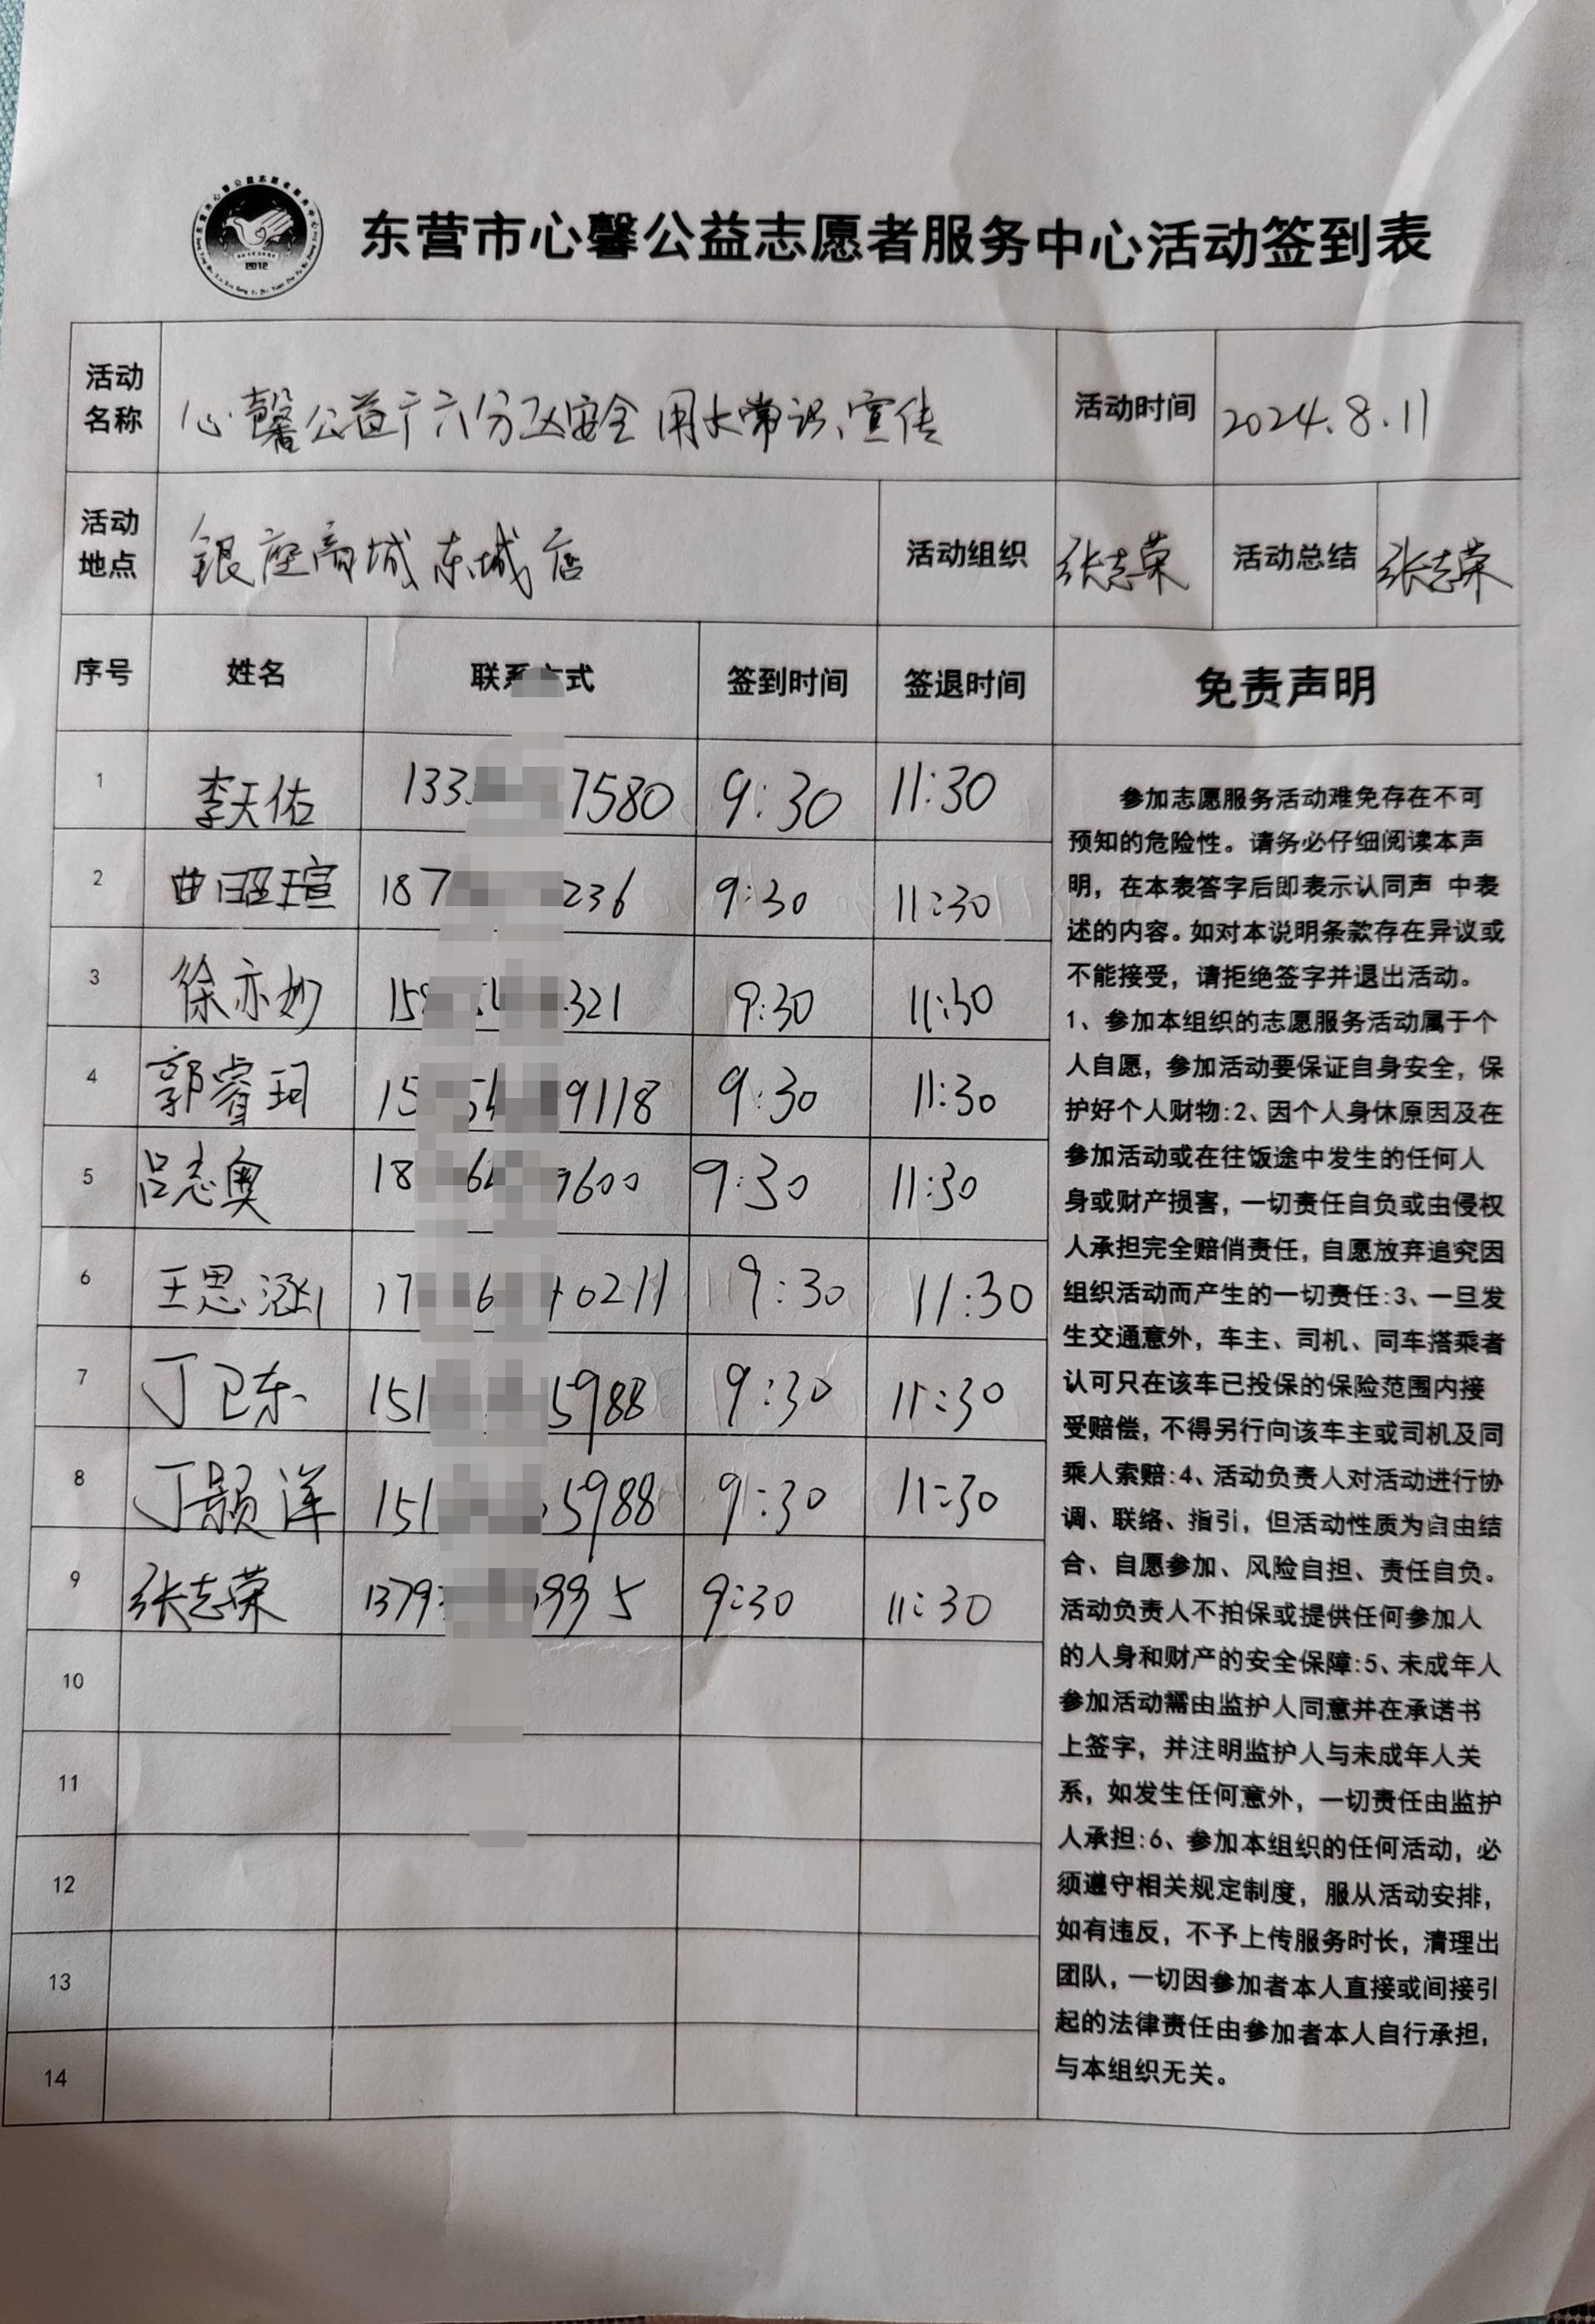 东营市心馨公益志愿者服务中心活动签到表
2012
活动名称 心馨公益广六分区安全用水常识宣传 活动时间 2024.8.11
活动地点 银座商城东城店 活动组织 张志荣 活动总结 张志荣
序号 姓名 联系方式 签到时间 签退时间 免责声明
1 李天佑 133 7580 9:30 11:30
2 曲昭瑄 187 236 9:30 11:30
3 徐亦妙 15 321 9:30 11:30
4 郭睿珂 15 9118 9:30 11:30
5 吕志奥 18 9600 9:30 11:30
6 王思涵 17 6 0211 9:30 11:30
7 丁卫东 151 5988 9:30 11:30
8 丁颢洋 151 5988 9:30 11:30
9 张志荣 1379 995 9:30 11:30
10
11
12
13
14
参加志愿服务活动难免存在不可
预知的危险性。请务必仔细阅读本声
明，在本表答字后即表示认同声 中表
述的内容。如对本说明条款存在异议或
不能接受，请拒绝签字并退出活动。
1、参加本组织的志愿服务活动属于个
人自愿，参加活动要保证自身安全，保
护好个人财物:2、因个人身休原因及在
参加活动或在往饭途中发生的任何人
身或财产损害，一切责任自负或由侵权
人承担完全赔俏责任，自愿放弃追究因
组织活动而产生的一切责任:3、一旦发
生交通意外，车主、司机、同车搭乘者
认可只在该车已投保的保险范围内接
受赔偿，不得另行向该车主或司机及同
乘人索赔:4、活动负责人对活动进行协
调、联络、指引，但活动性质为自由结
合、自愿参加、风险自担、责任自负。
活动负责人不拍保或提供任何参加人
的人身和财产的安全保障:5、未成年人
参加活动需由监护人同意并在承诺书
上签字，并注明监护人与未成年人关
系，如发生任何意外，一切责任由监护
人承担:6、参加本组织的任何活动，必
须遵守相关规定制度，服从活动安排，
如有违反，不予上传服务时长，清理出
团队，一切因参加者本人直接或间接引
起的法律责任由参加者本人自行承担，
与本组织无关。